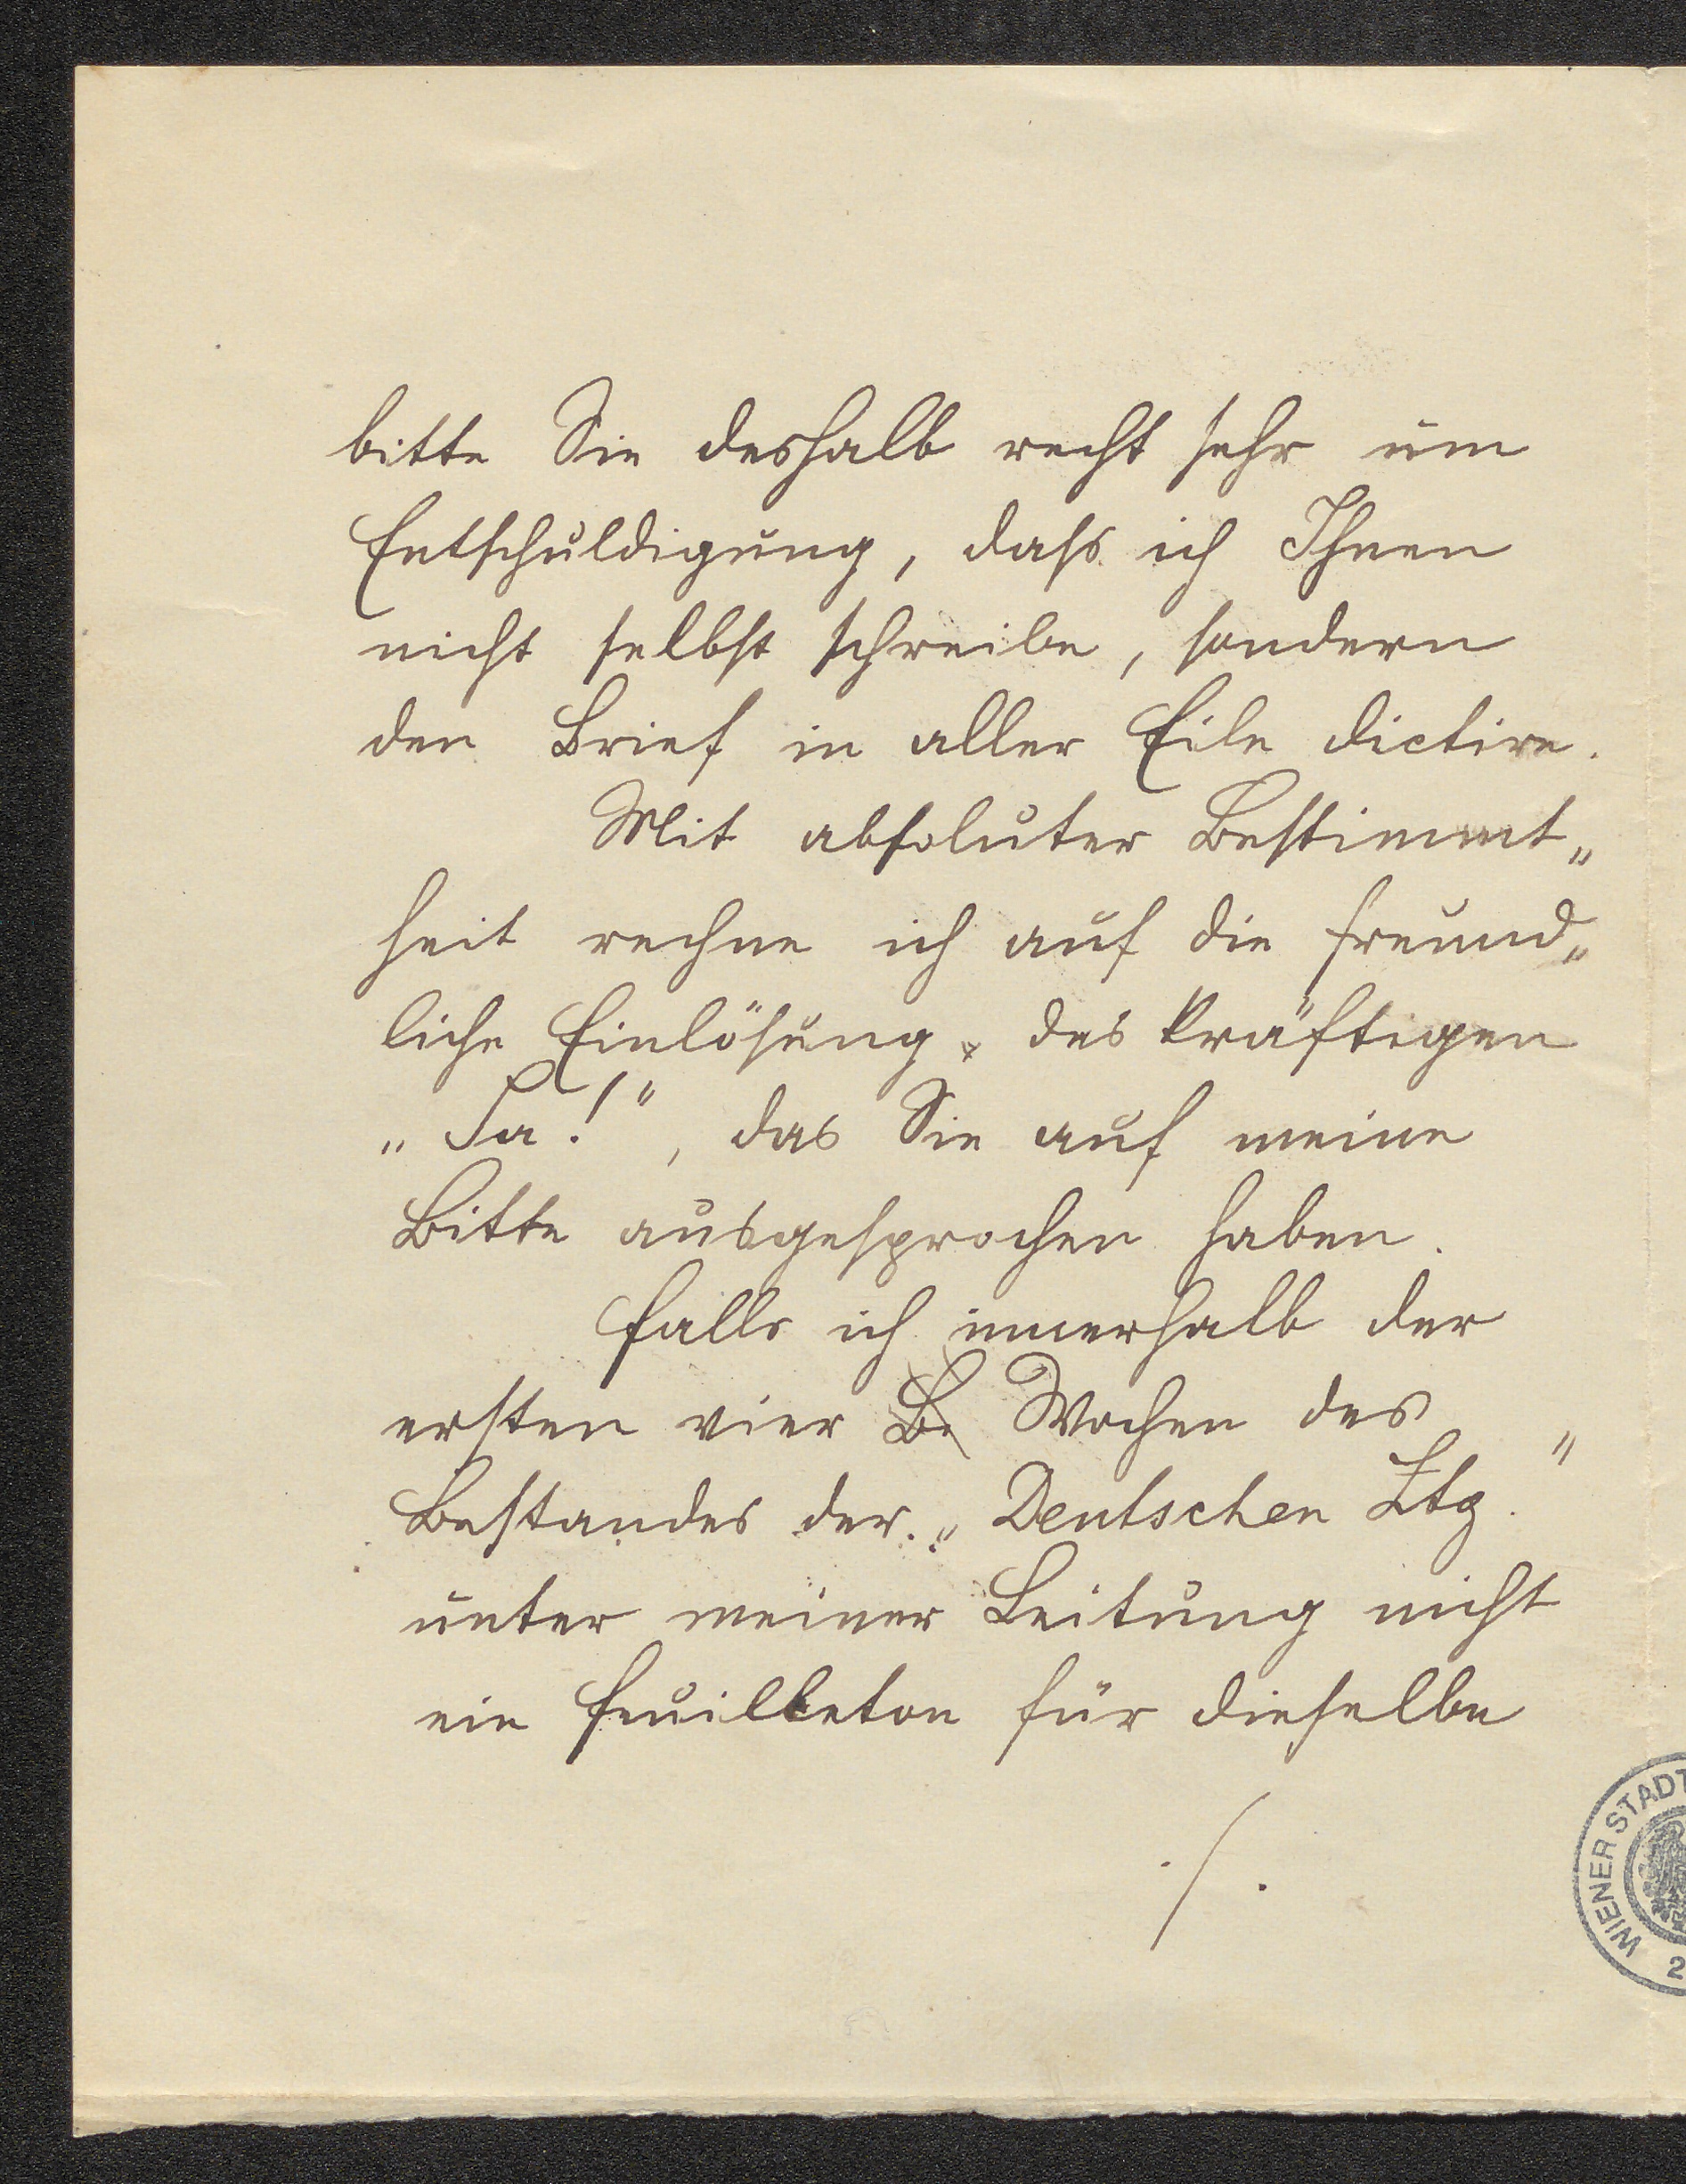 bitte Sie deshalb recht sehr um
Entschuldigung, dass ich Ihnen
nicht selbst schreibe, sondern
den Brief in aller Eile dictire.
Mit absoluter Bestimmt„
heit rechne ich auf die freund„
liche Einlösung des kräftigen
„Ja!“, das Sie auf meine
Bitte ausgesprochen haben.
Falls ich innerhalb der
ersten vier Be Wochen des
Bestandes der „Deutschen Ztg.“
unter meiner Leitung nicht
ein Feuilleton für dieselbe
./.
WIENER STADT
2